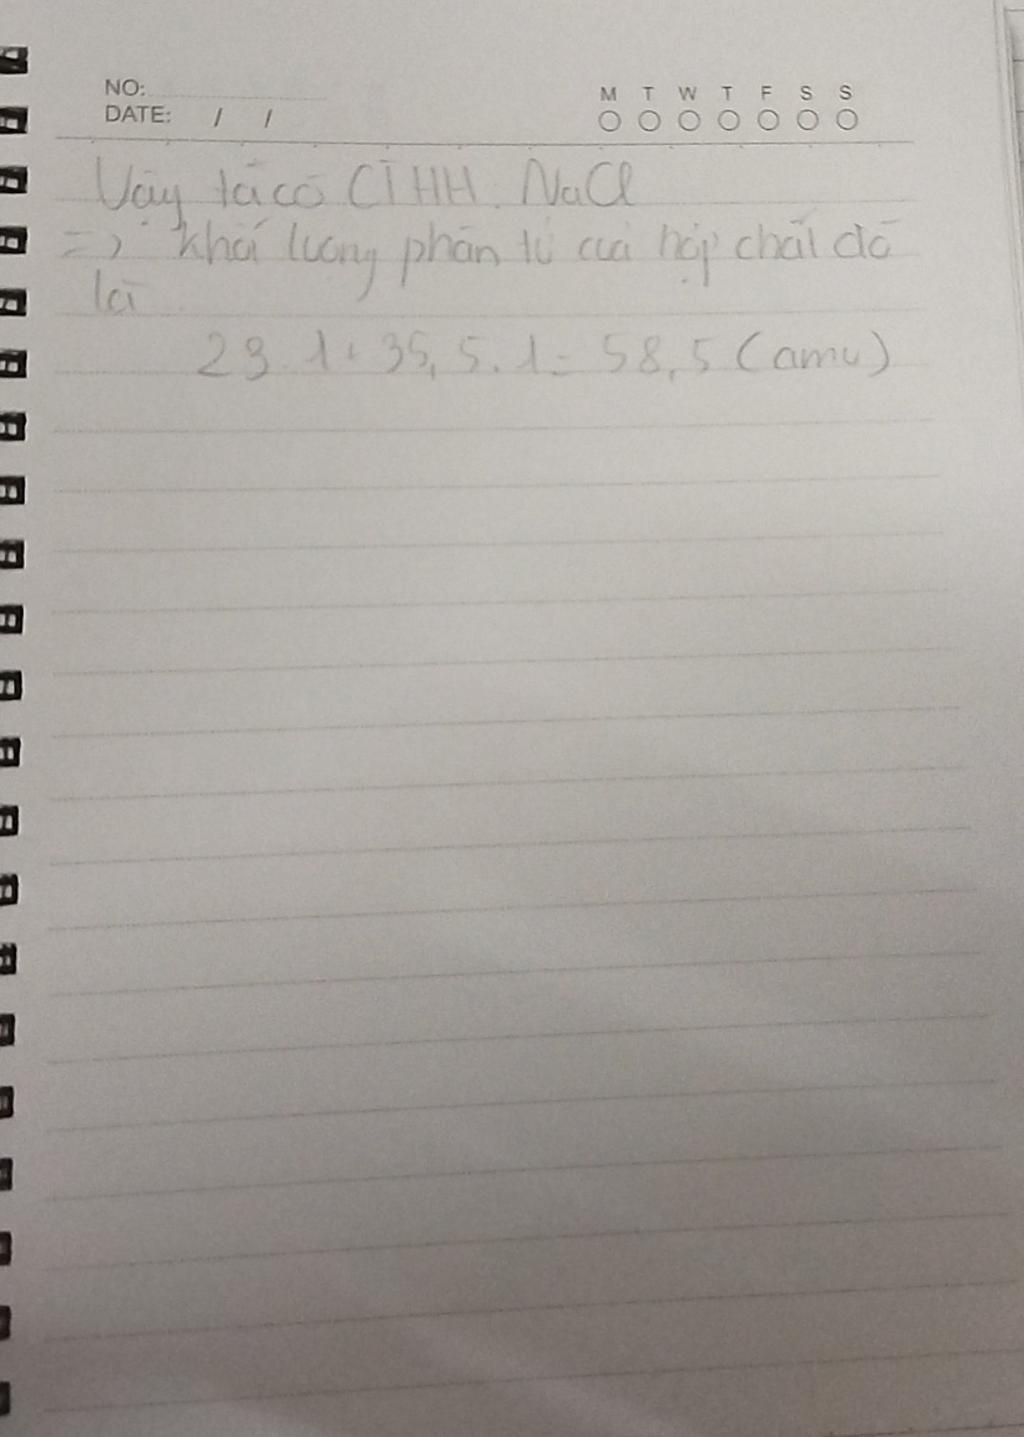 NO:
DATE: / /
M T W T F S S
Vậy ta có CTHH: NaCl
=> Khối lượng phân tử của hợp chất đó
là
23.1+35,5.1=58,5(amu)